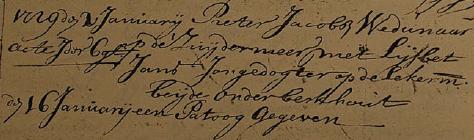 1729 den 2 Januarij Pieter Jacobsz Wedunaar
acte op de Zuijdermeer, met Lijsbet
Jans Jongedogter op de Lekerm.
beijde onder berkhout
den 16 Januarij een Patoog Gegeven